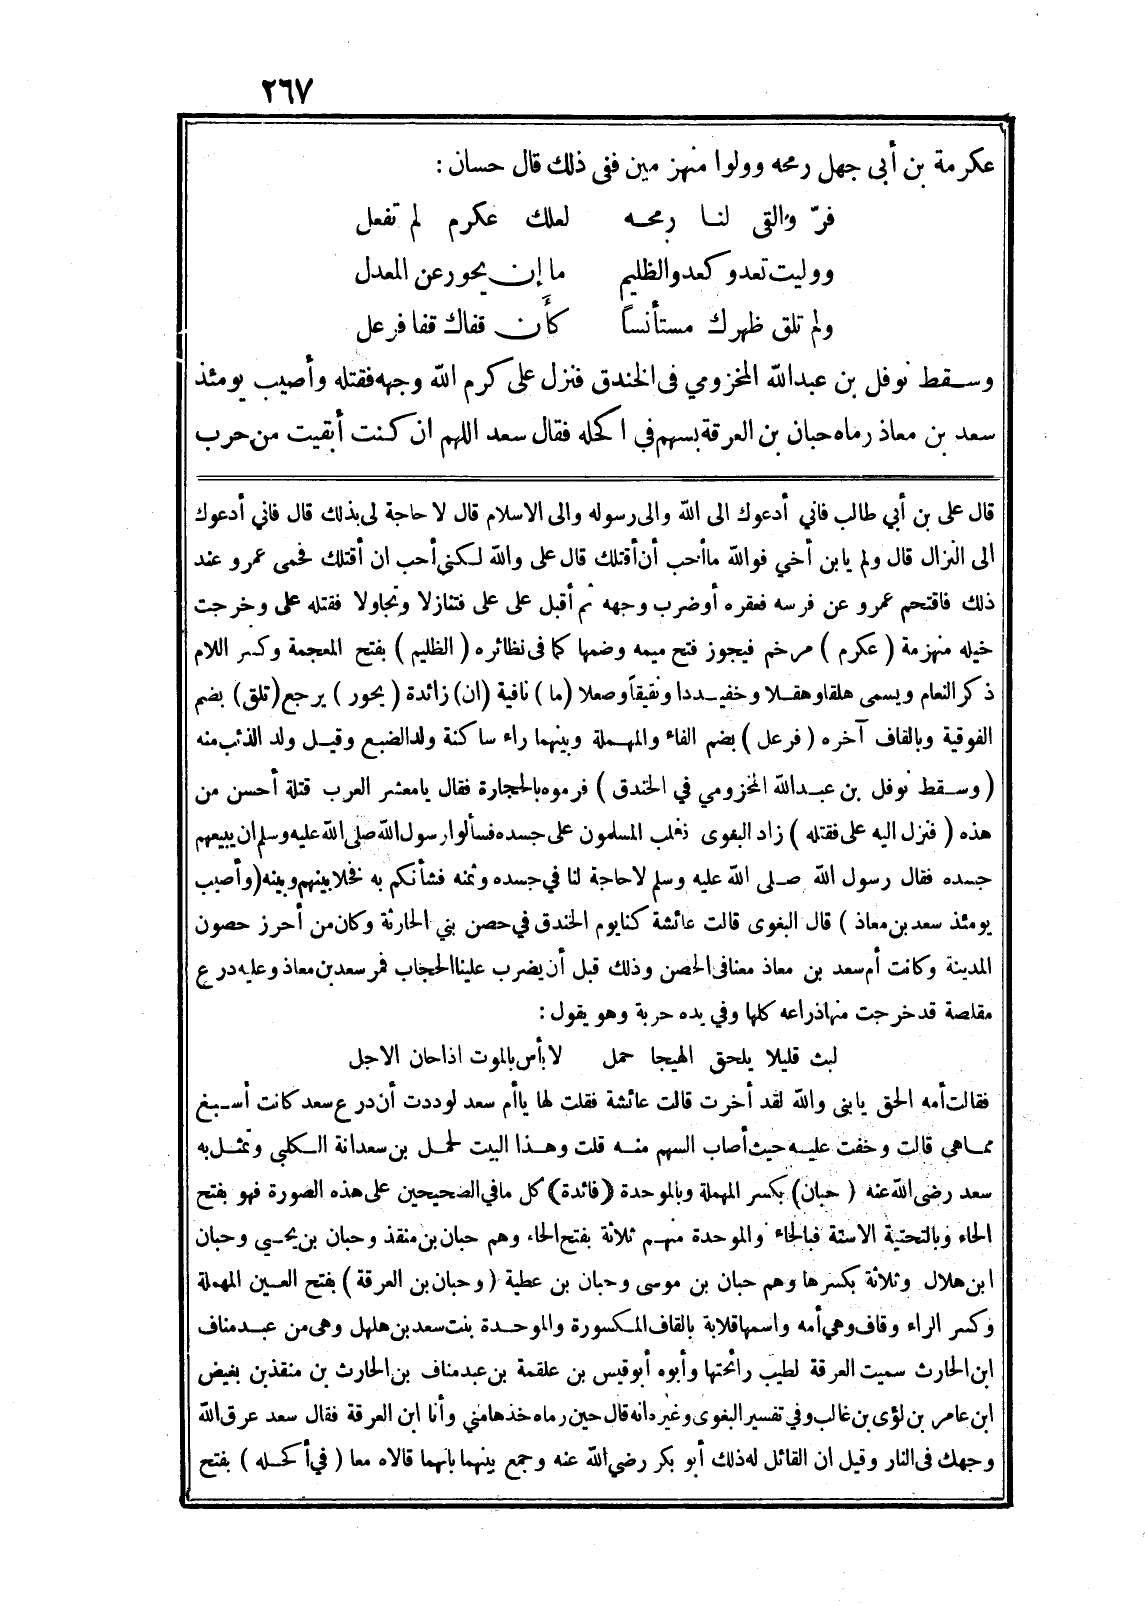 ٢٦٧
عكرمة بن أبى جهل رمحه وولوا منهزمين ففى ذلك قال حسان :
فرّ وألقى لنا رمحه لعلك عكرم لم تفعل
ووليت تعدو كعدو الظليم ما إن يحور عن المعدل
ولم تلق ظهرك مستأنساً كأن قفاك قفا فرعل
وسقط نوفل بن عبدالله المخزومي فى الخندق فنزل على كرم الله وجهه فقتله وأصيب يومئذ
سعد بن معاذ رماه حبان بن العرقة بسهم في اكحله فقال سعد اللهم ان كنت أبقيت من حرب
قال على بن أبي طالب فاني أدعوك الى الله والى رسوله والى الاسلام قال لا حاجة لى بذلك قال فاني أدعوك
الى النزال قال ولم يابن أخي فوالله ماأحب أن أقتلك قال على والله لكنى أحب ان أقتلك فحمى عمرو عند
ذلك فاقتحم عمرو عن فرسه فعقره أوضرب وجهه ثم أقبل على على فتنازلا وتجاولا فقتله على وخرجت
خيله منهزمة ( عكرم ) مرخم فيجوز فتح ميمه وضمها كما فى نظائره ( الظليم ) بفتح المعجمة وكسر اللام
ذكر النعام ويسمى هلقاوهقلا وخفيددا ونقيقاً وصعلا (ما) نافية (ان) زائدة ( يحور ) يرجع (تلق) بضم
الفوقية وبالقاف آخره ( فرعل ) بضم الفاء والمهملة وبينهما راء ساكنة ولد الضبع وقيل ولد الذئب منه
( وسقط نوفل بن عبدالله المخزومي في الخندق ) فرموه بالحجارة فقال يامعشر العرب قتلة أحسن من
هذه ( فنزل اليه على فقتله ) زاد البغوى فغلب المسلمون على جسده فسألوا رسول الله صلى الله عليه وسلم ان يبيعهم
جسده فقال رسول الله صلى الله عليه وسلم لاحاجة لنا في جسده وثمنه فشأنكم به فخلا بينهم وبينه (وأصيب
يومئذ سعد بن معاذ ) قال البغوى قالت عائشة كنا يوم الخندق في حصن بني الحارثة وكان من أحرز حصون
المدينة وكانت أم سعد بن معاذ معنا فى الحصن وذلك قبل أن يضرب علينا الحجاب فمر سعد بن معاذ وعليه درع
مقلصة قد خرجت منها ذراعه كلها وفي يده حربة وهو يقول :
لبث قليلا يلحق الهيجا حمل لا بأس بالموت اذا حان الاجل
فقالت أمه الحق يابنى والله لقد أخرت قالت عائشة فقلت لها ياأم سعد لوددت أن درع سعد كانت أسبغ
مما هي قالت وخفت عليه حيث أصاب السهم منه قلت وهذا البيت لحمل بن سعدانة الكلبي وتمثل به
سعد رضى الله عنه ( حبان) بكسر المهملة وبالموحدة (فائدة) كل مافي الصحيحين على هذه الصورة فهو بفتح
الحاء وبالتحتية الاستة فبالحاء والموحدة منهم ثلاثة بفتح الحاء وهم حبان بن منقذ وحبان بن يحيى وحبان
ابن هلال وثلاثة بكسرها وهم حبان بن موسى وحبان بن عطية ( وحبان بن العرقة ) بفتح العين المهملة
وكسر الراء وقاف وهي أمه واسمها قلابة بالقاف المكسورة والموحدة بنت سعد بن هلهل وهى من عبد مناف
ابن الحارث سميت العرقة لطيب رائحتها وأبوه أبو قيس بن علقمة بن عبد مناف بن الحارث بن منقذ بن بغيض
ابن عامر بن لؤى بن غالب وفي تفسير البغوى وغيره انه قال حين رماه خذها منى وأنا ابن العرقة فقال سعد عرق الله
وجهك فى النار وقيل ان القائل له ذلك أبو بكر رضى الله عنه وجمع بينهما بانهما قالاه معا ( في أكحله ) بفتح